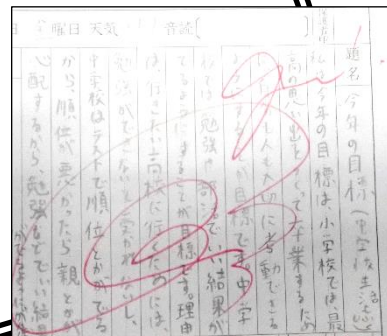 日 曜日 天気 音読〔 〕
題名 今年の目標（中学校生活
私 今年の目標は小学校では最
高の思い出をつくって卒業するため
しい人も大切に考動できる
ようにすることが目標です。中学
校では勉強や部活でいい結果が
でるようにすることが目標です。理由
は、行きたい高校に行くためには、
勉強ができないと受からないし、
中学校はテストで順位とかがでる
から、順位が悪かったら親とかが
心配するから、勉強などでいい結
かでるようにか